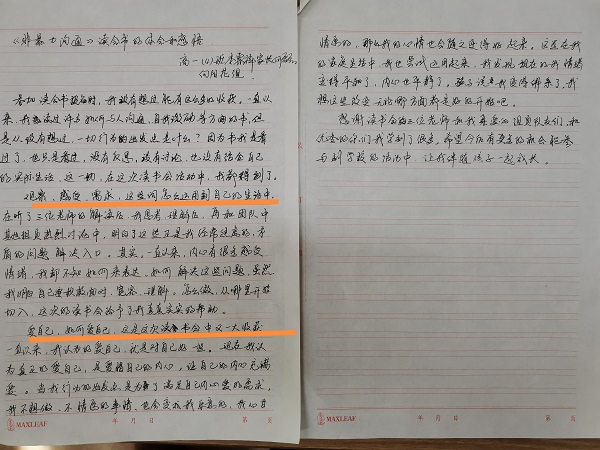 《非暴力沟通》读书会的体会和感悟
高一(4)
向日葵组
参加读书会报名时，我没有想过能有这么多的收获。一直以
来，我都读过许多如何与人沟通，自我激励等方面的书，但
是从没有想过，一切行为的出发点是什么？因为书我是看
过了，也只是看过，没有反思，没有讨论，也没有结合自己
的实际生活，这一切，在这次读书会活动中，我都得到了。
观察，感受，需求，这些词怎么运用到自己的生活中，
在听了三位老师的解读后，我思考，理解后，再和团队中
其他组员热烈讨论中，明白了这些正是我经常逃离的，
的问题解决入口。其实，一直以来，内心有很多感受
情绪，我却不知如何来表达。如何解决这些问题，虽然
我明白自己要积极面对，宽容，理解。怎么做，从哪里开始
切入，这次的读书会给予了我真真实实的帮助。
爱自己，如何爱自己，这是这次读书会中又一大收获
一直以来，我认为的爱自己，就是对自己好一些。现在我认
为真正的爱自己，是爱惜自己的内心。让自己的内心充满
爱。当我行为的出发点是为了满足自己内心爱的需求，
我不想做，不情愿的事情，也会变成我乐意的，我心甘
MAXLEAF 年 月 日 第 页
情愿的，那么我的心情也会随之变得好起来。这点在我
的家庭生活中，我也尝试运用起来，我发现现在的我情绪
变得平和了，内心也平静了。孩子说妈妈变得
想这些改变无论哪方面都是好的开始吧。
感谢读书会的三位老师和我的组员队友们，和
优秀的你们我学到了很多。希望今后有更多的机会能参
与到学校的活动中，让我伴随孩子一起成长。
MAXLEAF 年 月 日 第 页